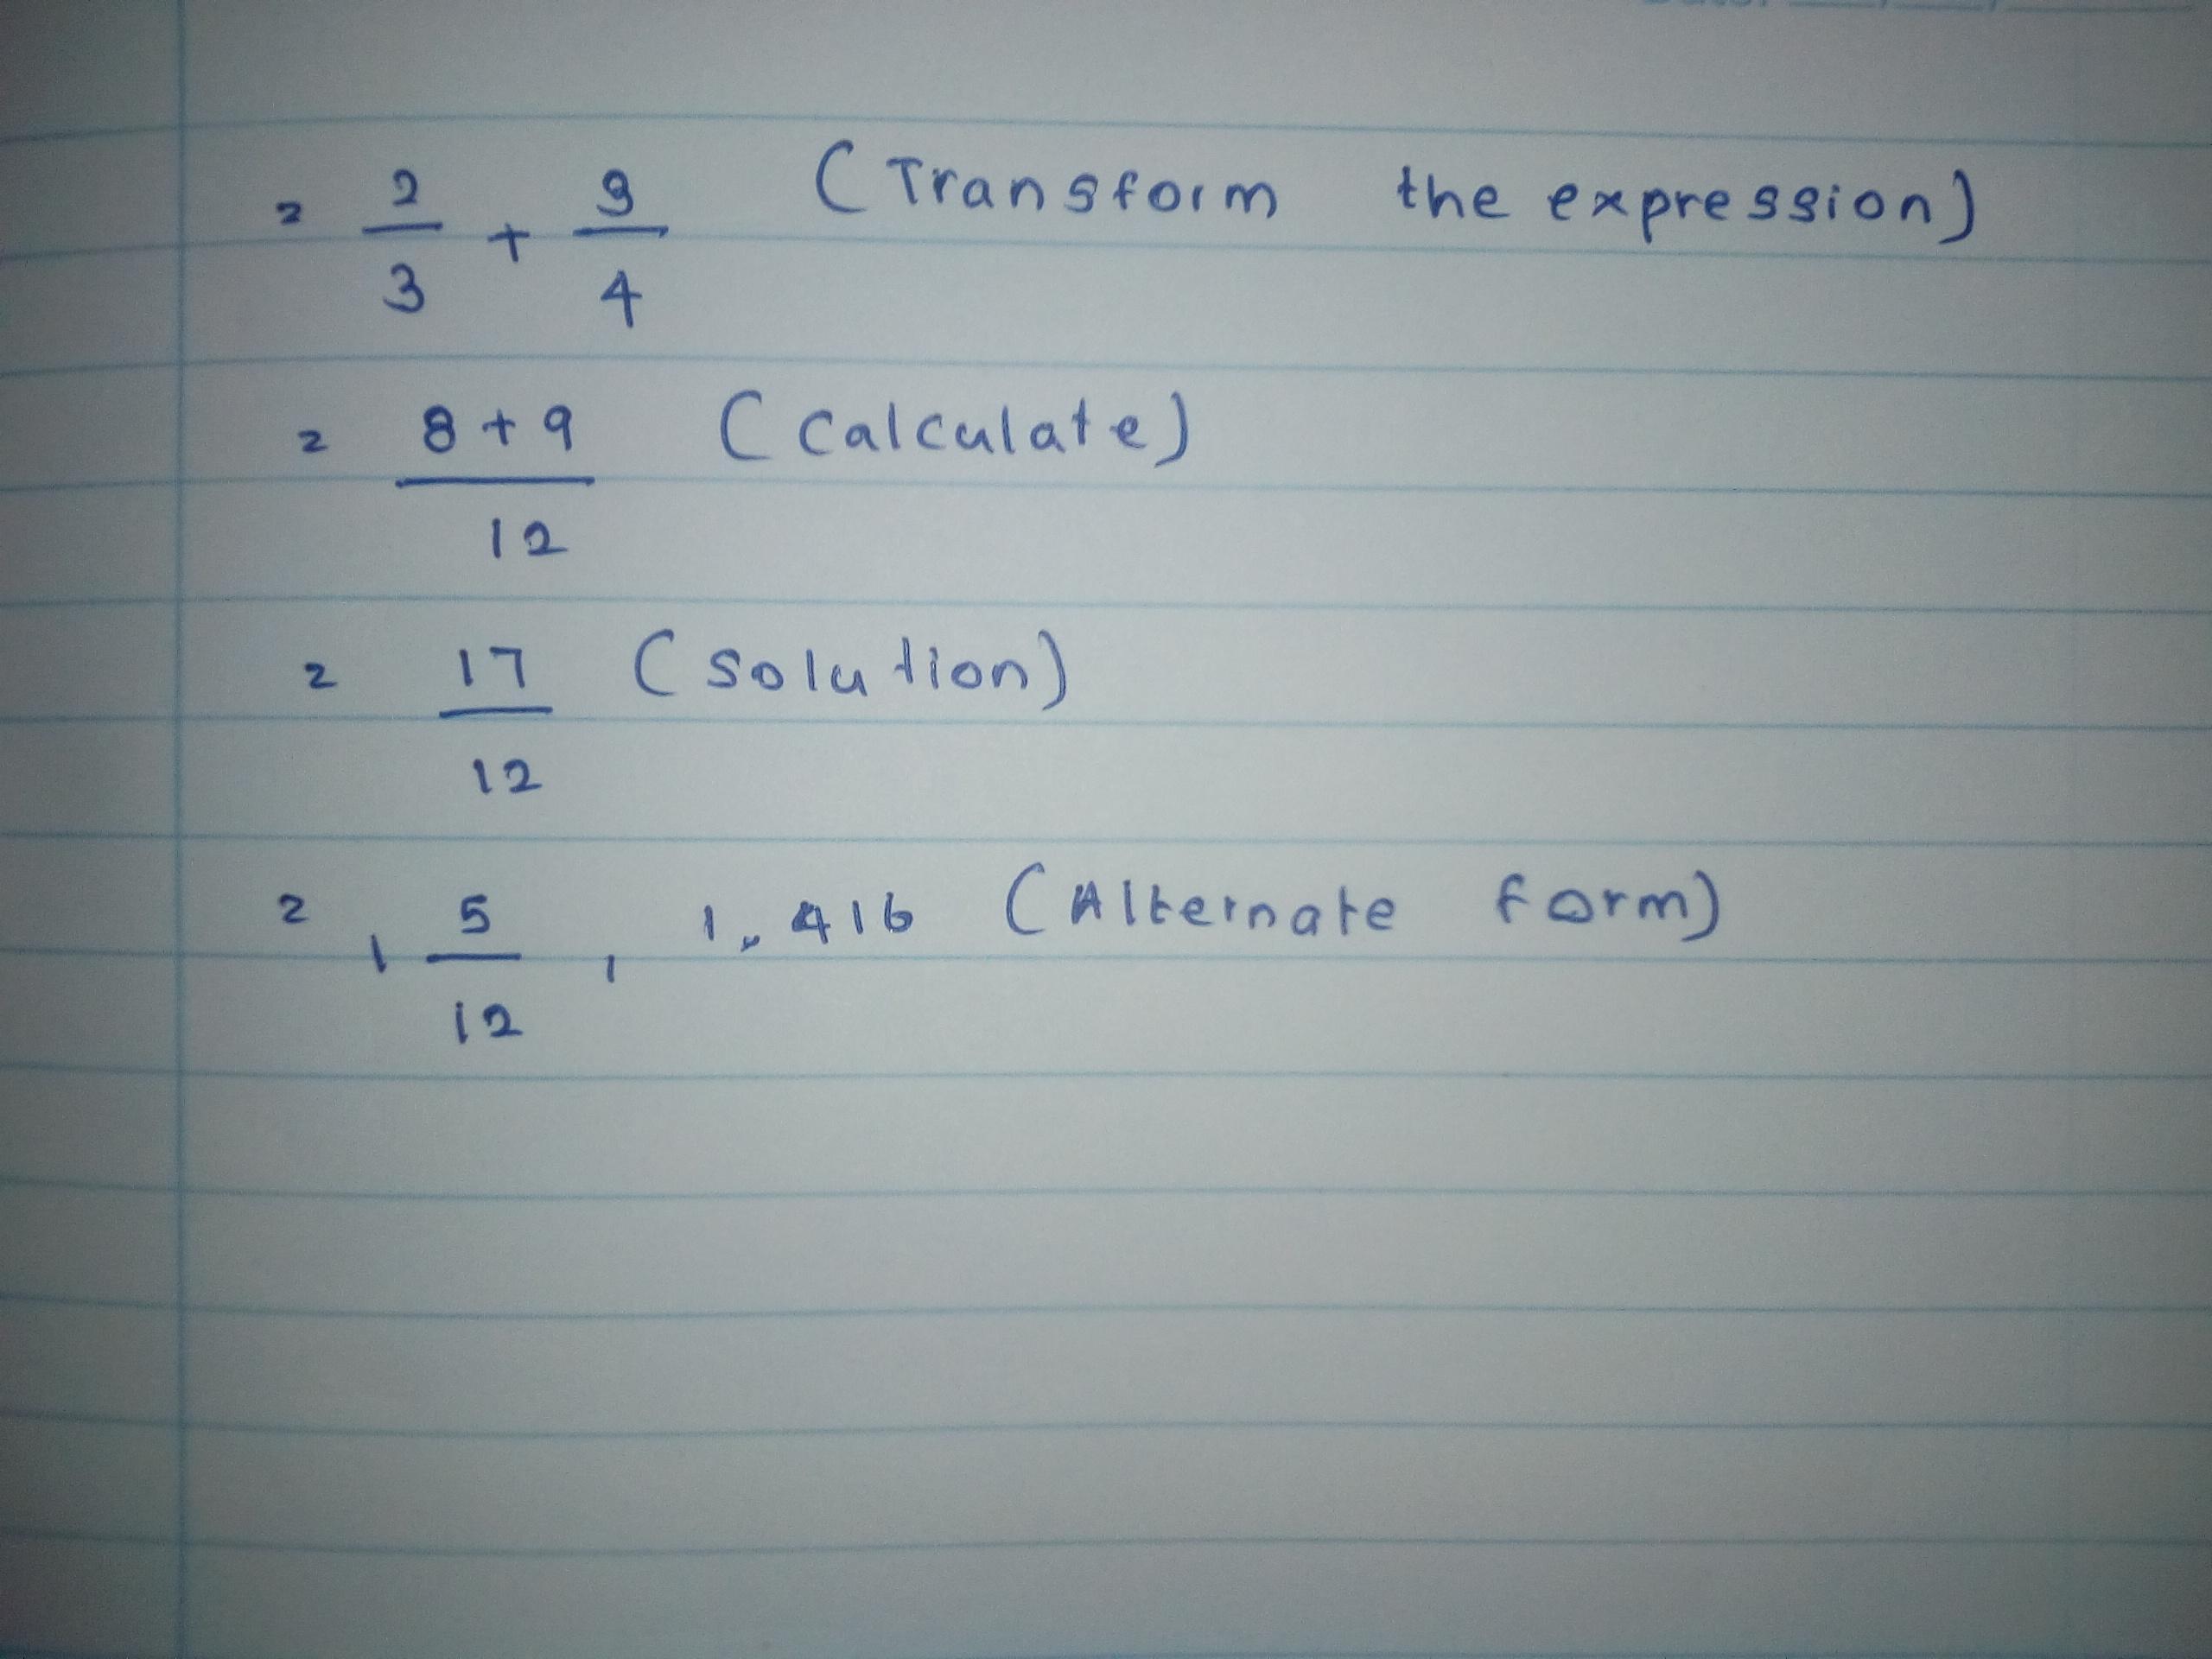 = 2/3 + 3/4 (Transform the expression)
= 8+9/12 (Calculate)
= 17/12 (Solution)
= 1 5/12, 1.416 (Alternate form)